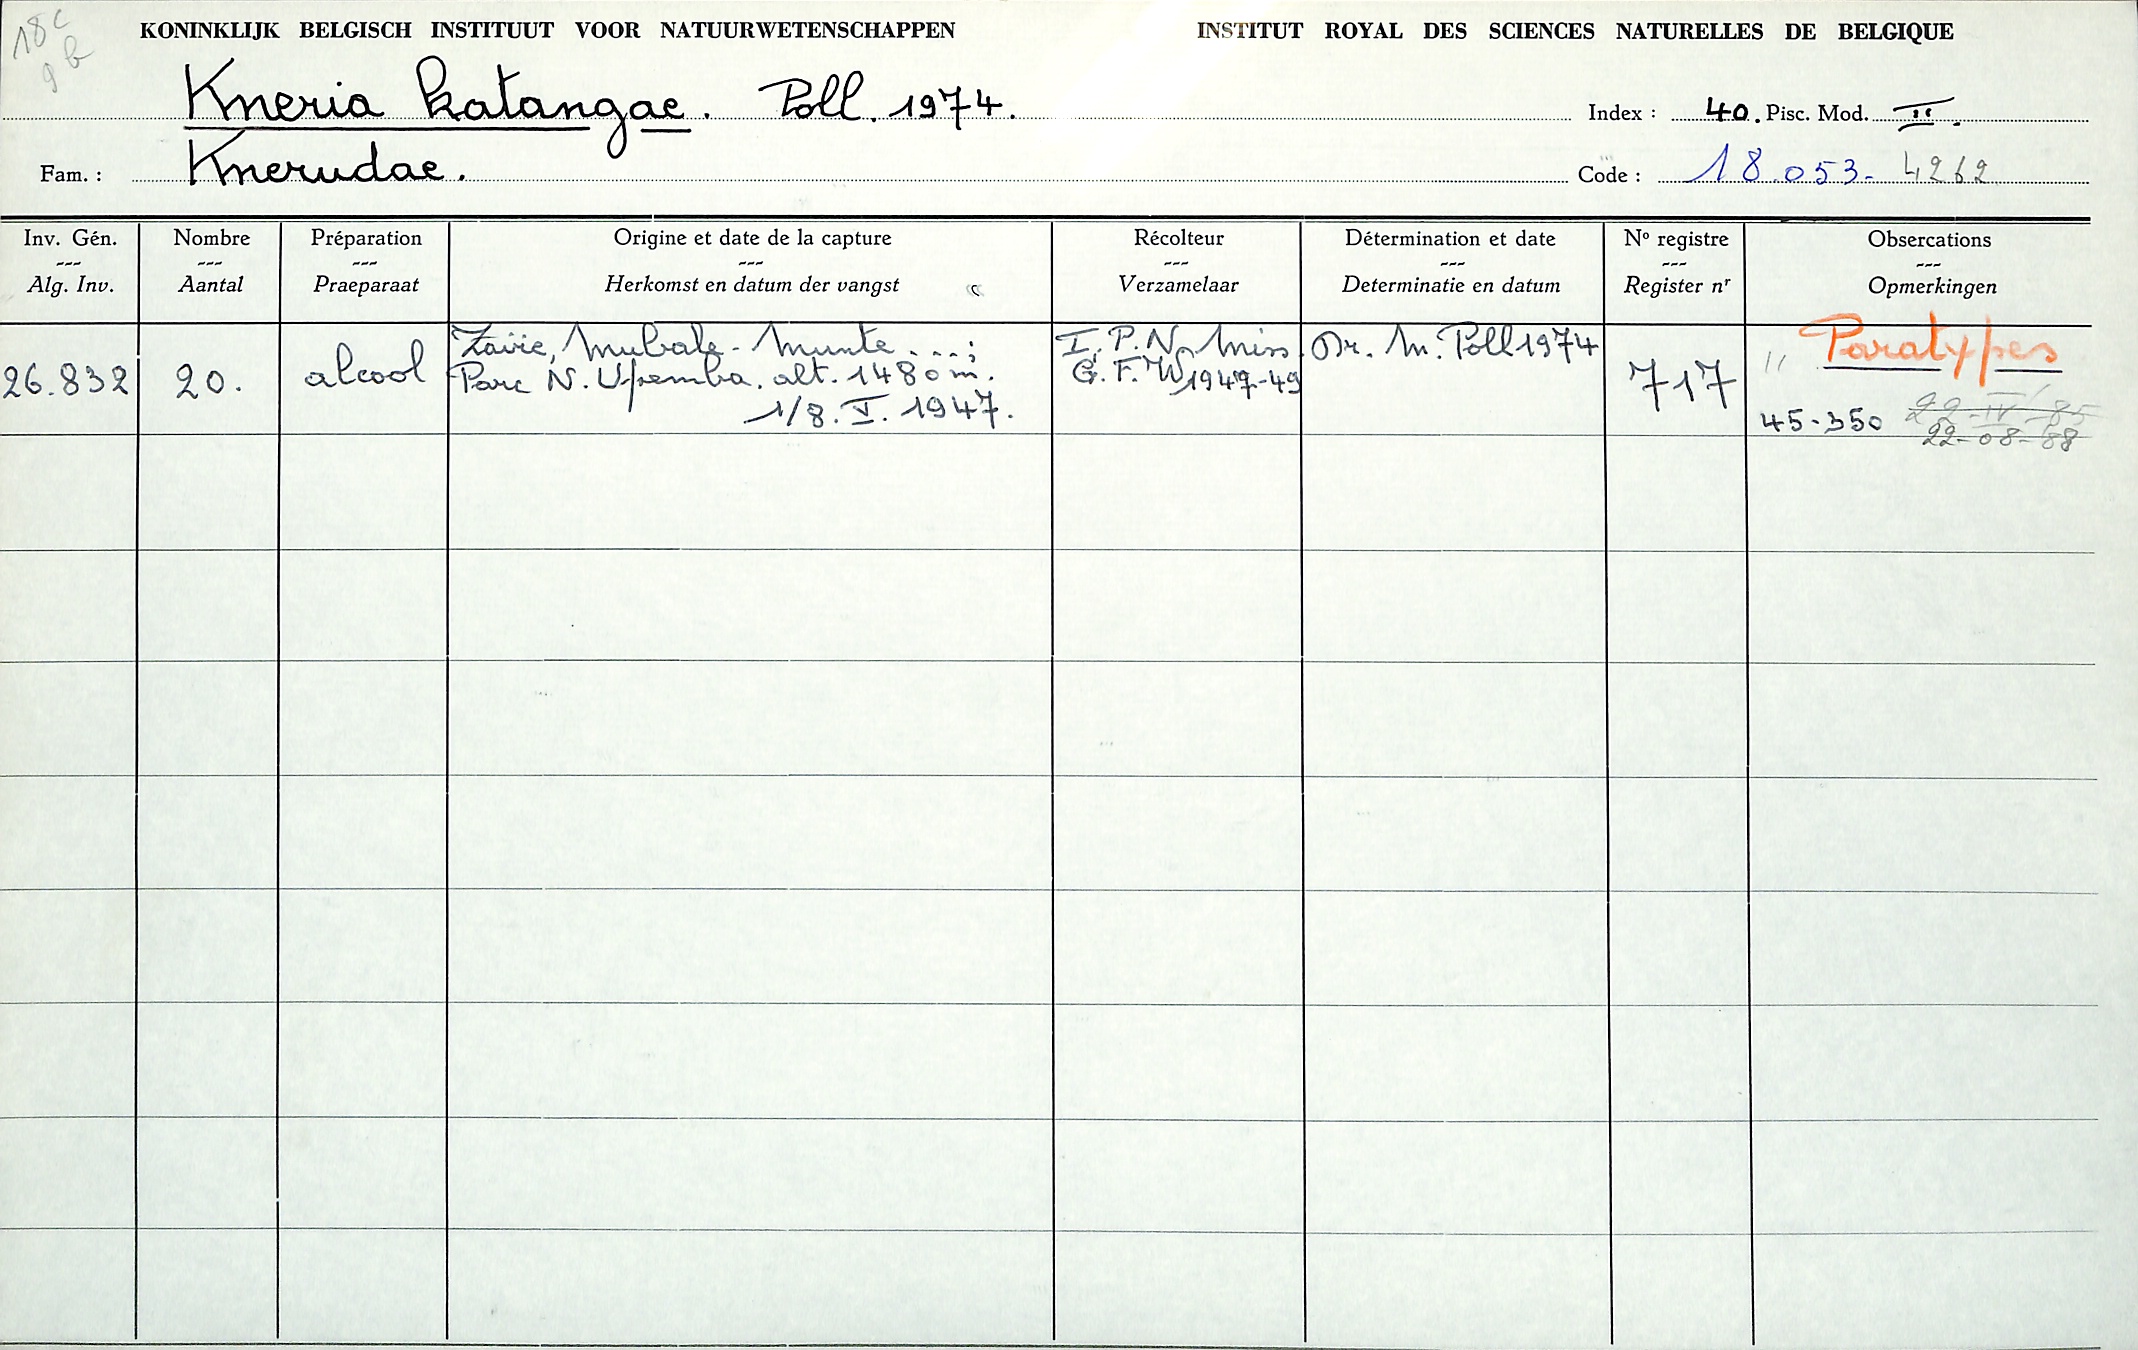 18c
9b
KONINKLIJK BELGISCH INSTITUUT VOOR NATUURWETENSCHAPPEN INSTITUT ROYAL DES SCIENCES NATURELLES DE BELGIQUE
Kneria katangae. Poll. 1974. Index : 40. Pisc. Mod. II.
Fam. : Kneriidae. Code : 18.053- 4262
Inv. Gén. Nombre Préparation Origine et date de la capture Récolteur Détermination et date No registre Obsercations
--- --- --- --- --- --- --- ---
Alg. Inv. Aantal Praeparaat Herkomst en datum der vangst Verzamelaar Determinatie en datum Register nr Opmerkingen
Zaïre, Mubale - Munte ...; I.P.N. Miss. Dr. M. Poll 1974 " Paratypes
26.832 20. alcool Parc N. Upemba. alt. 1480 m. G.F.W 1947-49 717
1/8. V. 1947. 45-350 22-IV-85
22-08-88